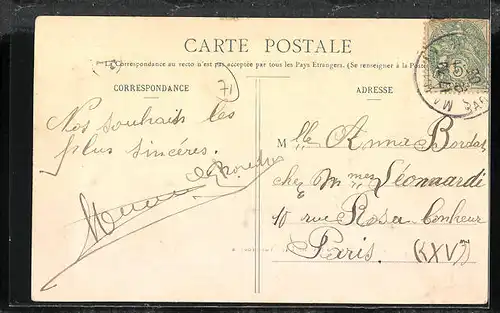 CARTE POSTALE
La Correspondance au recto n'est pas acceptée par tous les Pays Etrangers. (Se renseigner à la Poste)
CORRESPONDANCE
ADRESSE
71
Nos souhaits les
plus sincères.
Mlle Anna Bordas
chez Mmes Léonardi
10 rue Rosa Bonheur
Paris. (XVe)